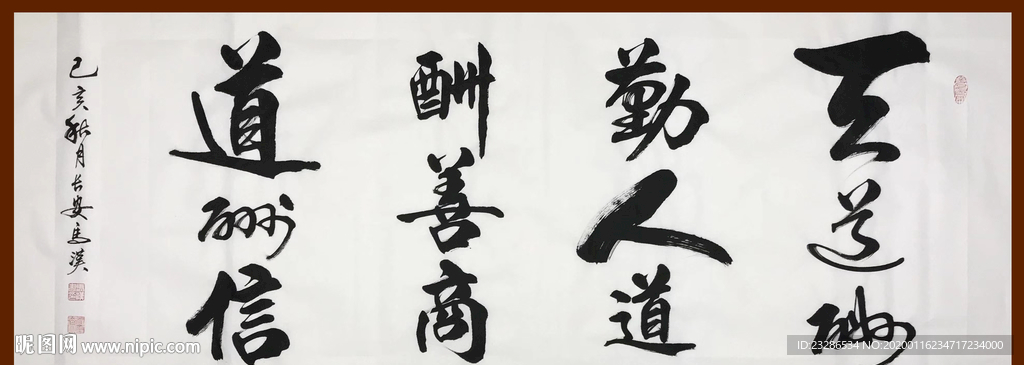 天道酬
勤人道
酬善商
道酬信
己亥秋月长安马汉
昵图网 www.nipic.com
ID:23286534 NO.20200116234717234000